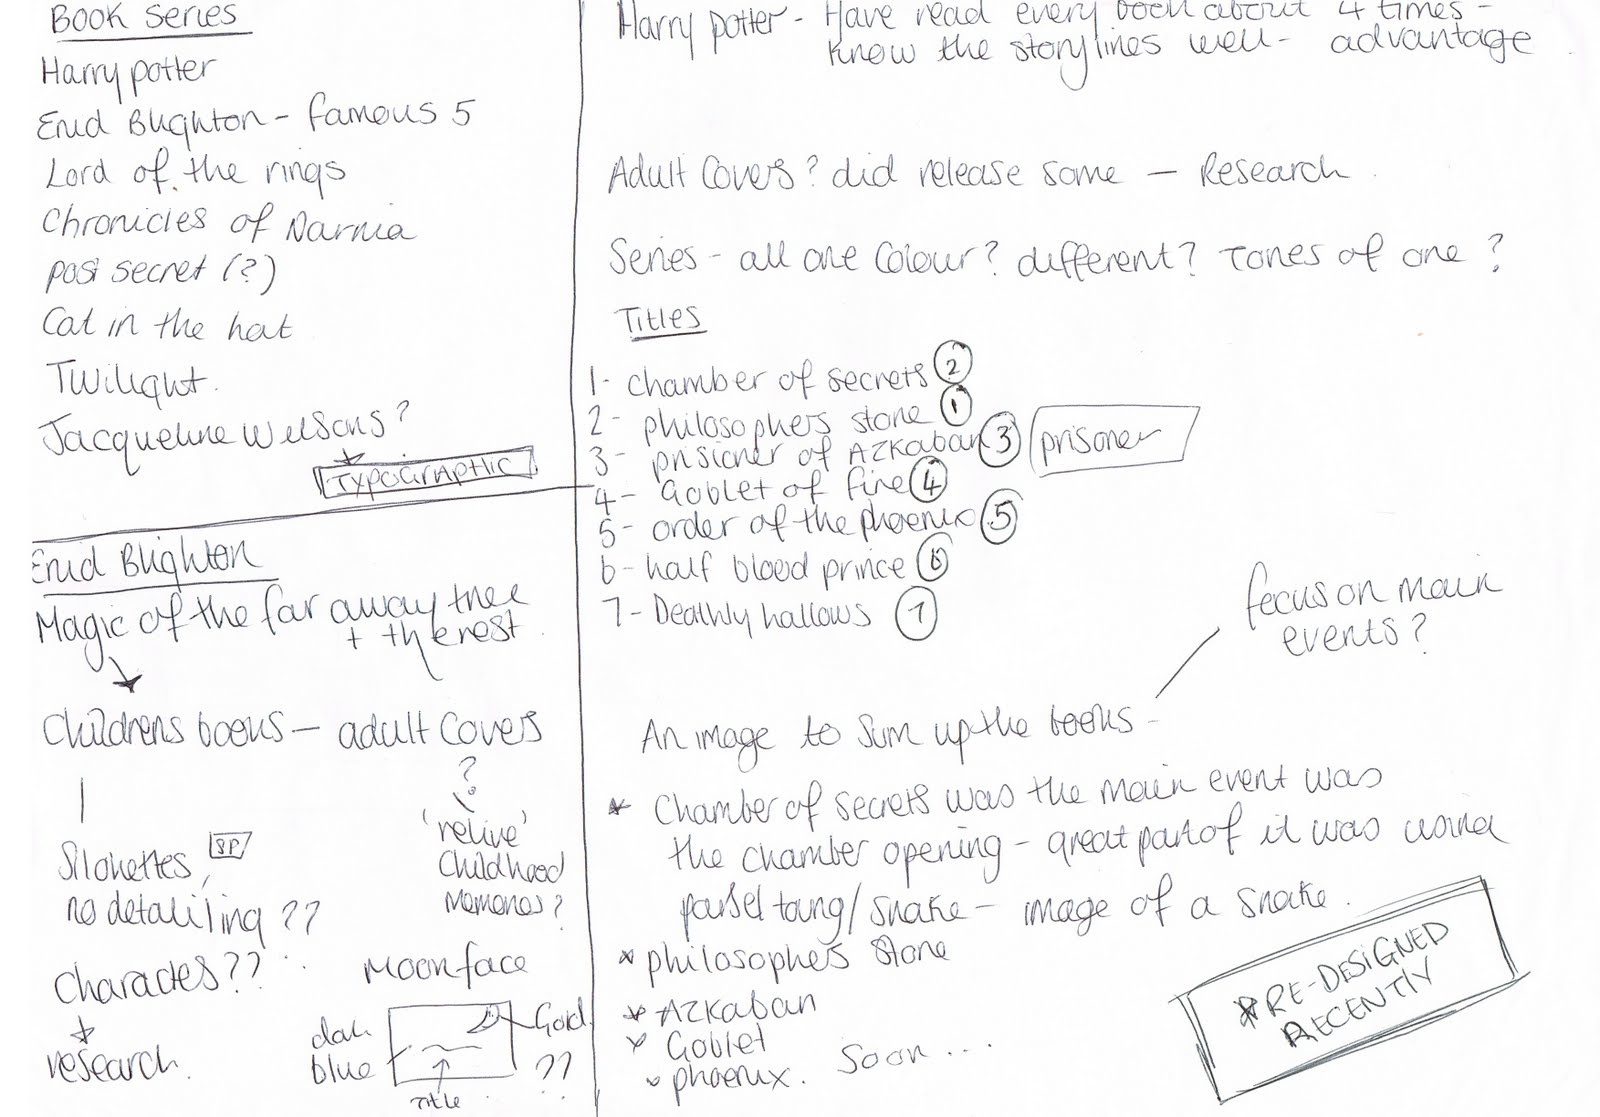 Book Series
Harry potter
Enid Blighton - famous 5
Lord of the rings
Chronicles of Narnia
post secret (?)
Cat in the hat
Twilight.
Jacqueline Wilsons?
TYPOGRAPHIC
Enid Blighton
Magic of the far away tree
+ the rest
Childrens books - adult Covers
Silouettes, SP
no detailing ??
Characters??
research.
?
'relive'
Childhood
Memories?
Moonface
dark
blue
Gold
??
Title
Harry potter - Have read every book about 4 times -
know the storylines well - advantage
Adult Covers? did release some - Research
Series - all one Colour? different? Tones of one?
Titles
1- chamber of secrets 2
2- philosophers stone 1
3- prisioner of AZKaban 3 prisoner
4- Goblet of fire 4
5- order of the phoenix 5
6- half blood prince 6
7- Deathly hallows 7
focus on main
events?
An image to sum up the books -
* Chamber of secrets was the main event was
the chamber opening - great part of it was around
parsel toung/snake - image of a snake.
* philosophers stone
* AZKaban
* Goblet
* phoenix.
Soon...
*RE-DESIGNED
RECENTLY